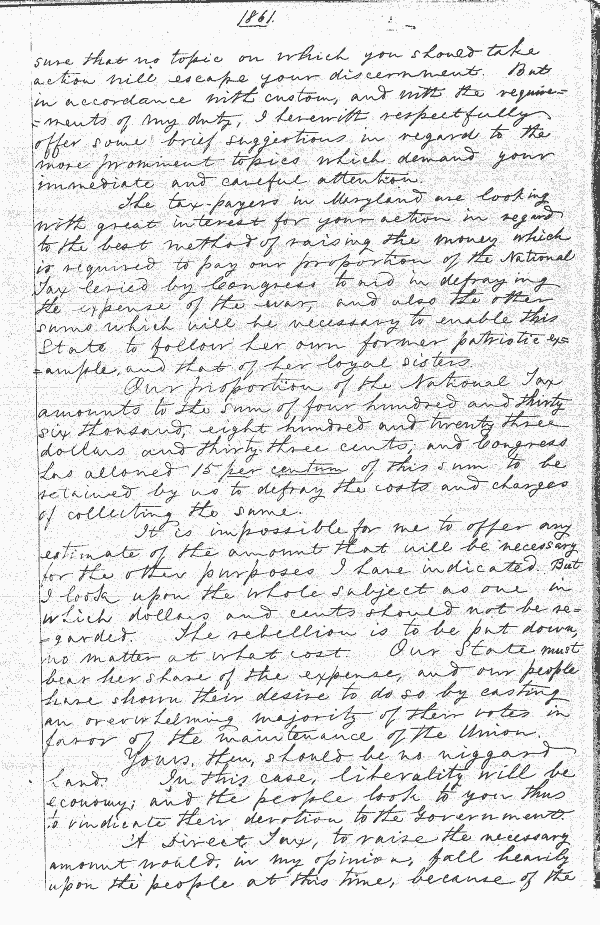 1861.
sure that no topic on which you should take
action will escape your discernment. But
in accordance with custom, and with the require=
=ments of my duty, I herewith respectfully
offer some brief suggestions in regard to the
more prominent topics which demand your
immediate and careful attention.
The tax-payers in Maryland are looking
with great interest for your action in regard
to the best method of raising the money which
is required to pay our proportion of the National
Tax levied by Congress to aid in defraying
the expense of the war, and also the other
sums which will be necessary to enable this
State to follow her own former patriotic ex=
=ample, and that of her loyal sisters.
Our proportion of the National Tax
amounts to the sum of four hundred and thirty
six thousand, eight hundred and twenty three
dollars and thirty-three cents; and Congress
has allowed 15 per centum of this sum to be
retained by us to defray the costs and charges
of collecting the same.
It is impossible for me to offer any
estimate of the amount that will be necessary
for the other purposes I have indicated. But
I look upon the whole subject as one in
which dollars and cents should not be re=
=garded. The rebellion is to be put down,
no matter at what cost. Our State must
bear her share of the expense, and our people
have shown their desire to do so by casting
an overwhelming majority of their votes in
favor of the maintenance of the Union.
Yours, then, should be no niggard
hand. In this case, liberality will be
economy; and the people look to you thus
to vindicate their devotion to the Government.
A Direct Tax, to raise the necessary
amount would, in my opinion, fall heavily
upon the people at this time, because of the